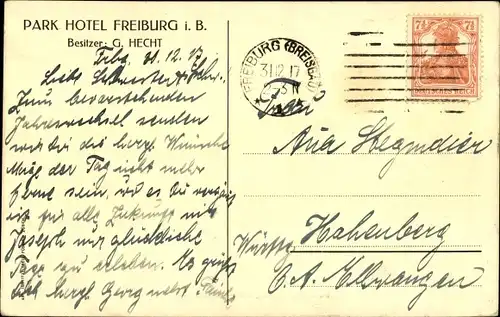 PARK HOTEL FREIBURG i. B.
Besitzer: G. HECHT
Frbg. 31.12.17
Liebe Schwester
Zum bevorstehenden
Jahreswechsel senden
wir dir die herzl. Wünsche
Möge der Tag nicht mehr
ferne sein, wo es
ist für alle Zukunft mit
Joseph nur glückliche
Tage zu erleben. Es grüßt
dich herzl. Georg nebst
FREIBURG (BREISGAU)
31.12.17
7½ 7½
DEUTSCHES REICH
Frau
Hohenberg
Württbg.
O.A. Ellwangen